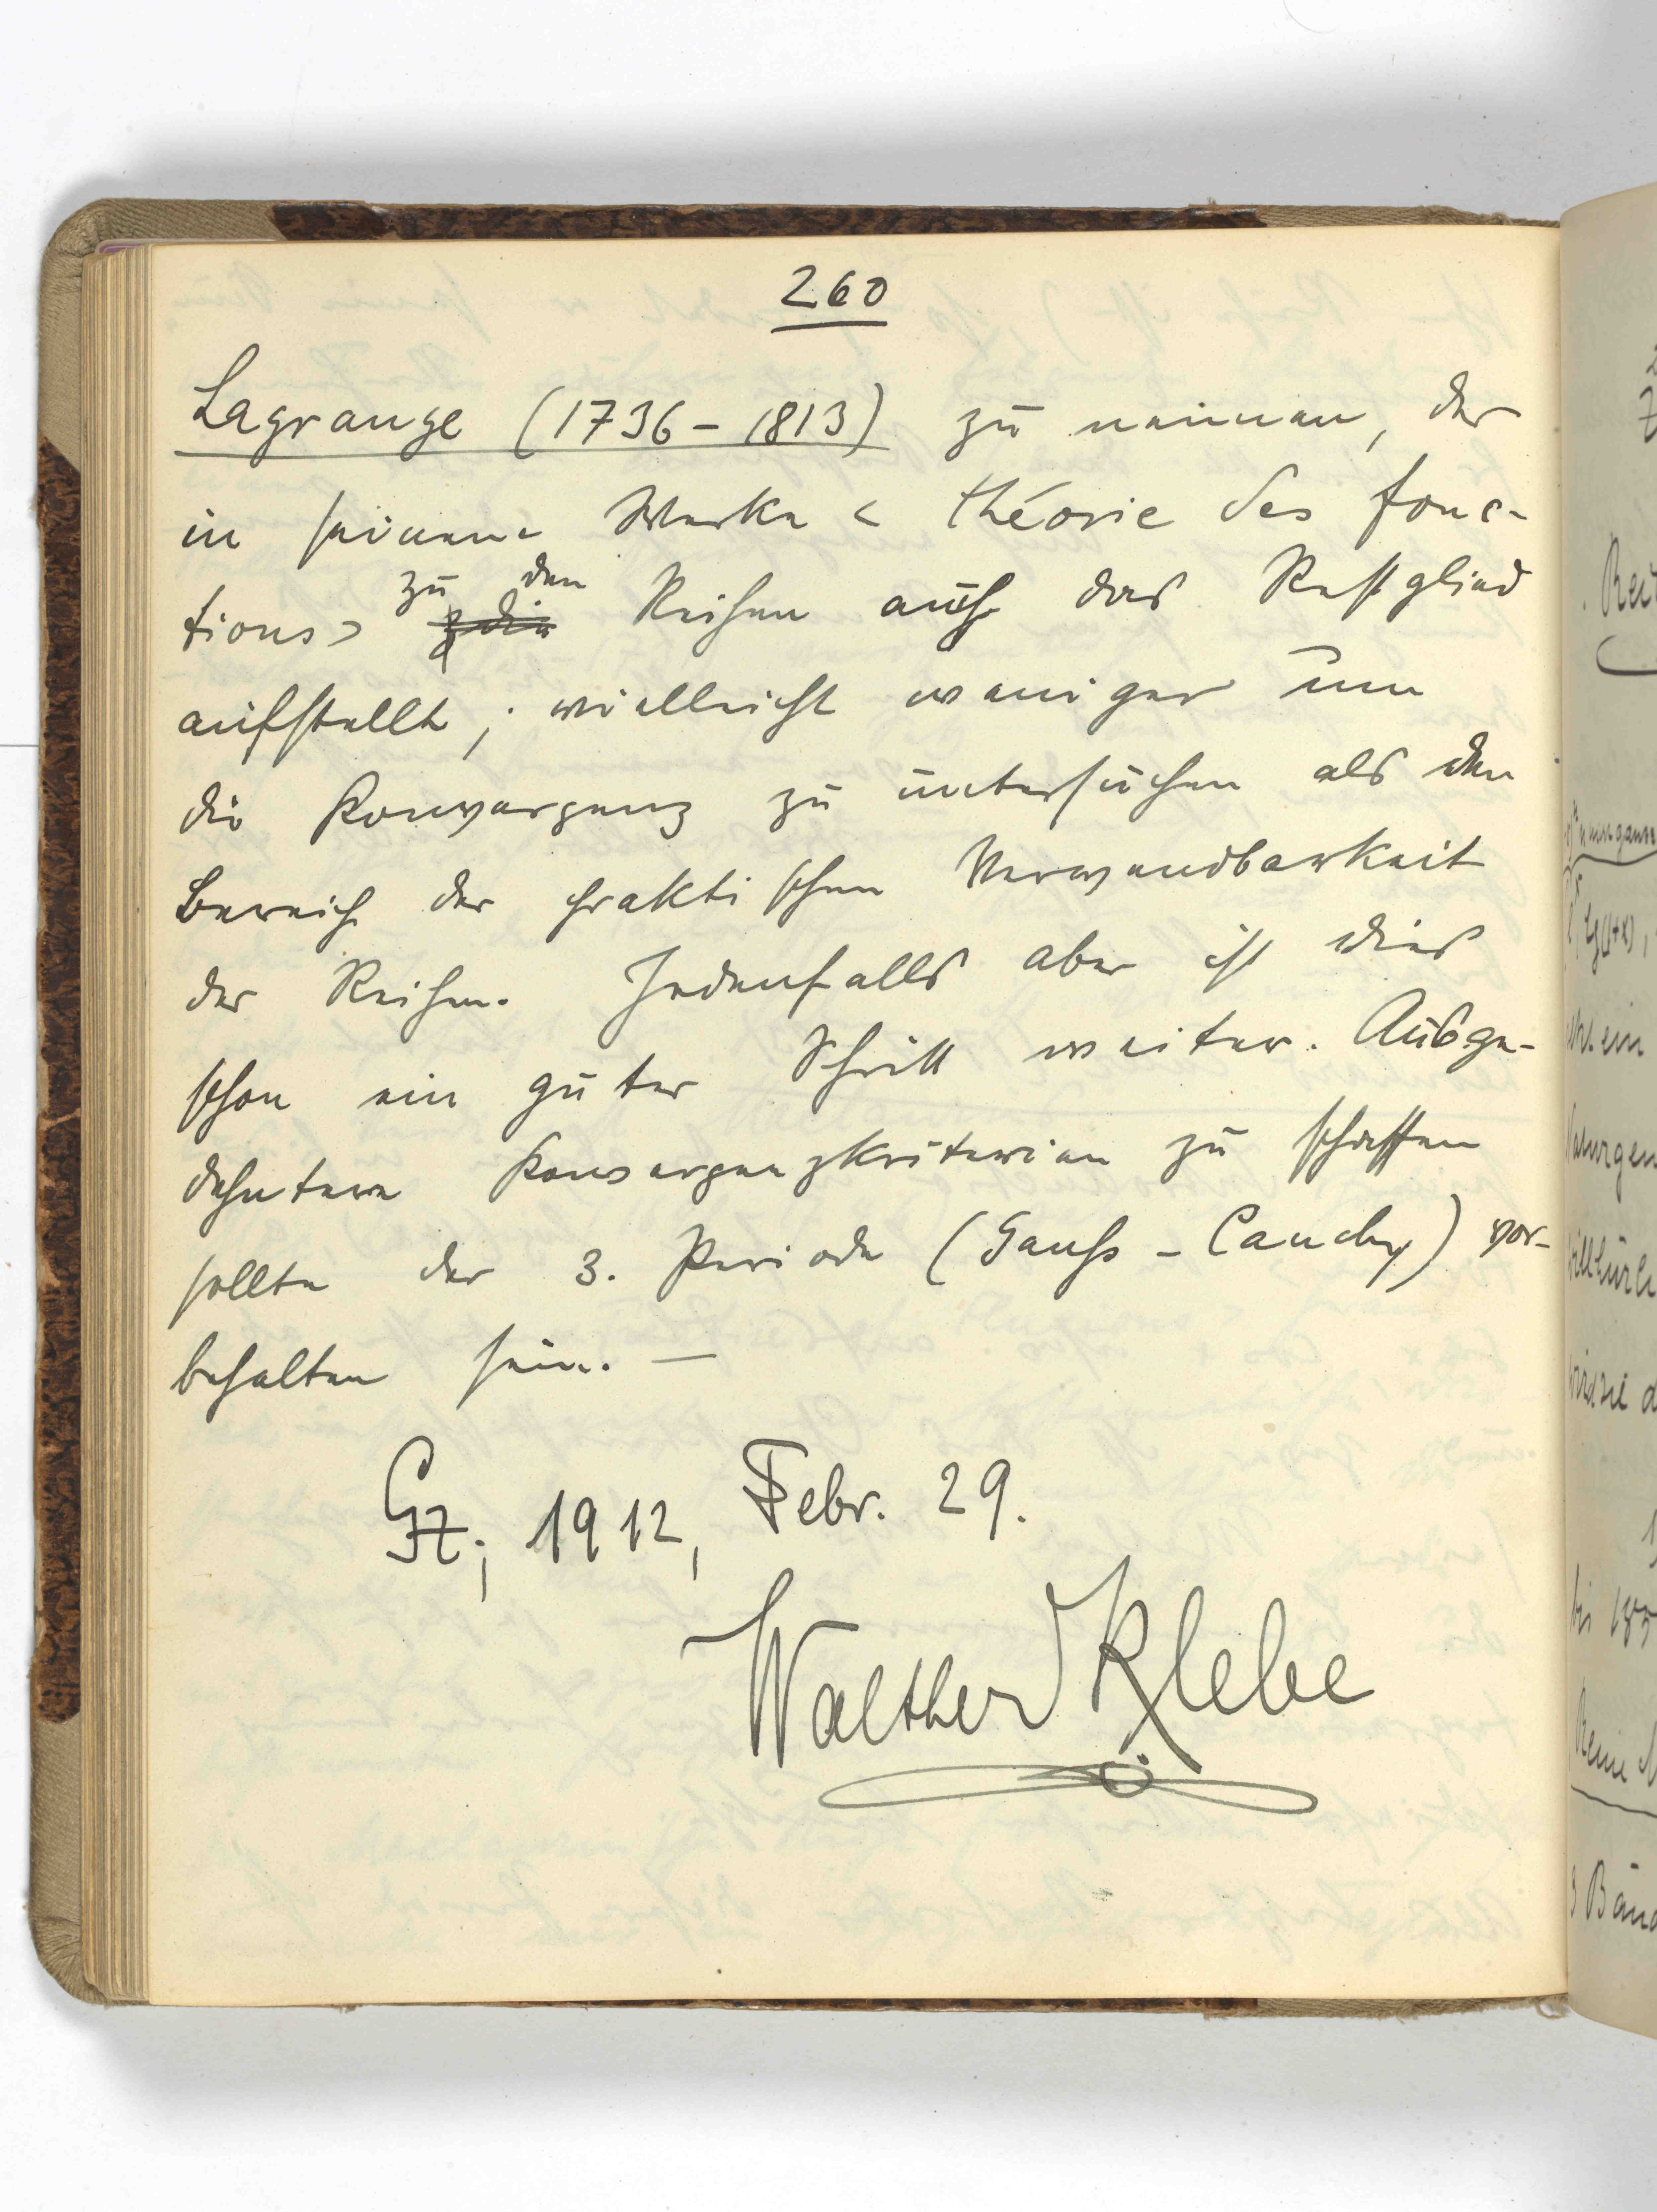 260
Lagrange (1736 – 1813) zu nennen, der
in seinem Werke < théorie des fonc-
tions> zu den Reihen auch das Restglied
aufstellt; vielleicht weniger um
die Konvergenz zu untersuchen als den
Bereich der praktischen Verwendbarkeit
der Reihen. Jedenfalls aber ist dies
schon ein guter Schritt weiter. Ausge-
dehntere Konvergenzkriterien zu schaffen
sollte der 3. Periode (Gauß – Cauchy) vor-
behalten sein. —
Gz; 1912, Febr. 29.
Walther Klebe